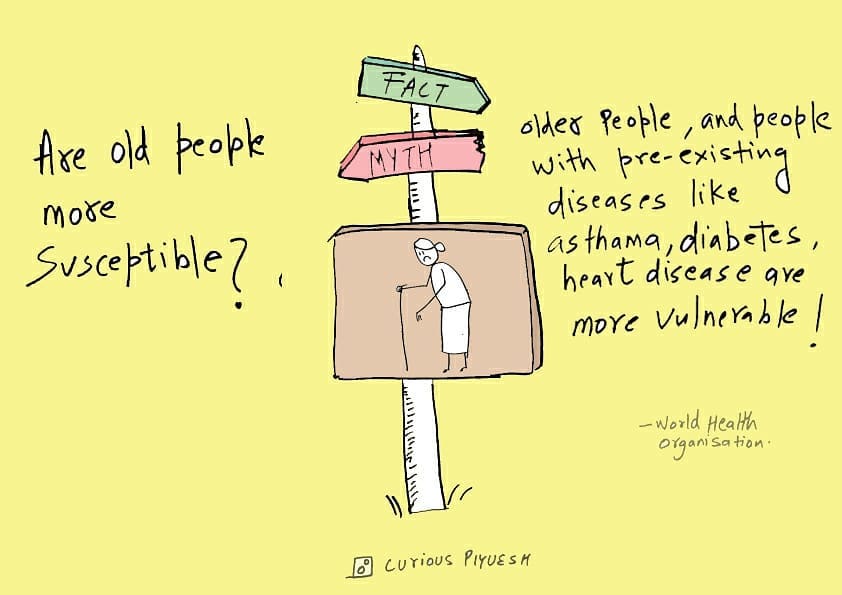 Are old people
more
Susceptible?
FACT
MYTH
older People, and people
with pre-existing
diseases like
asthama, diabetes,
heart disease are
more vulnerable!
- World Health
organisation.
curious PIYUESH